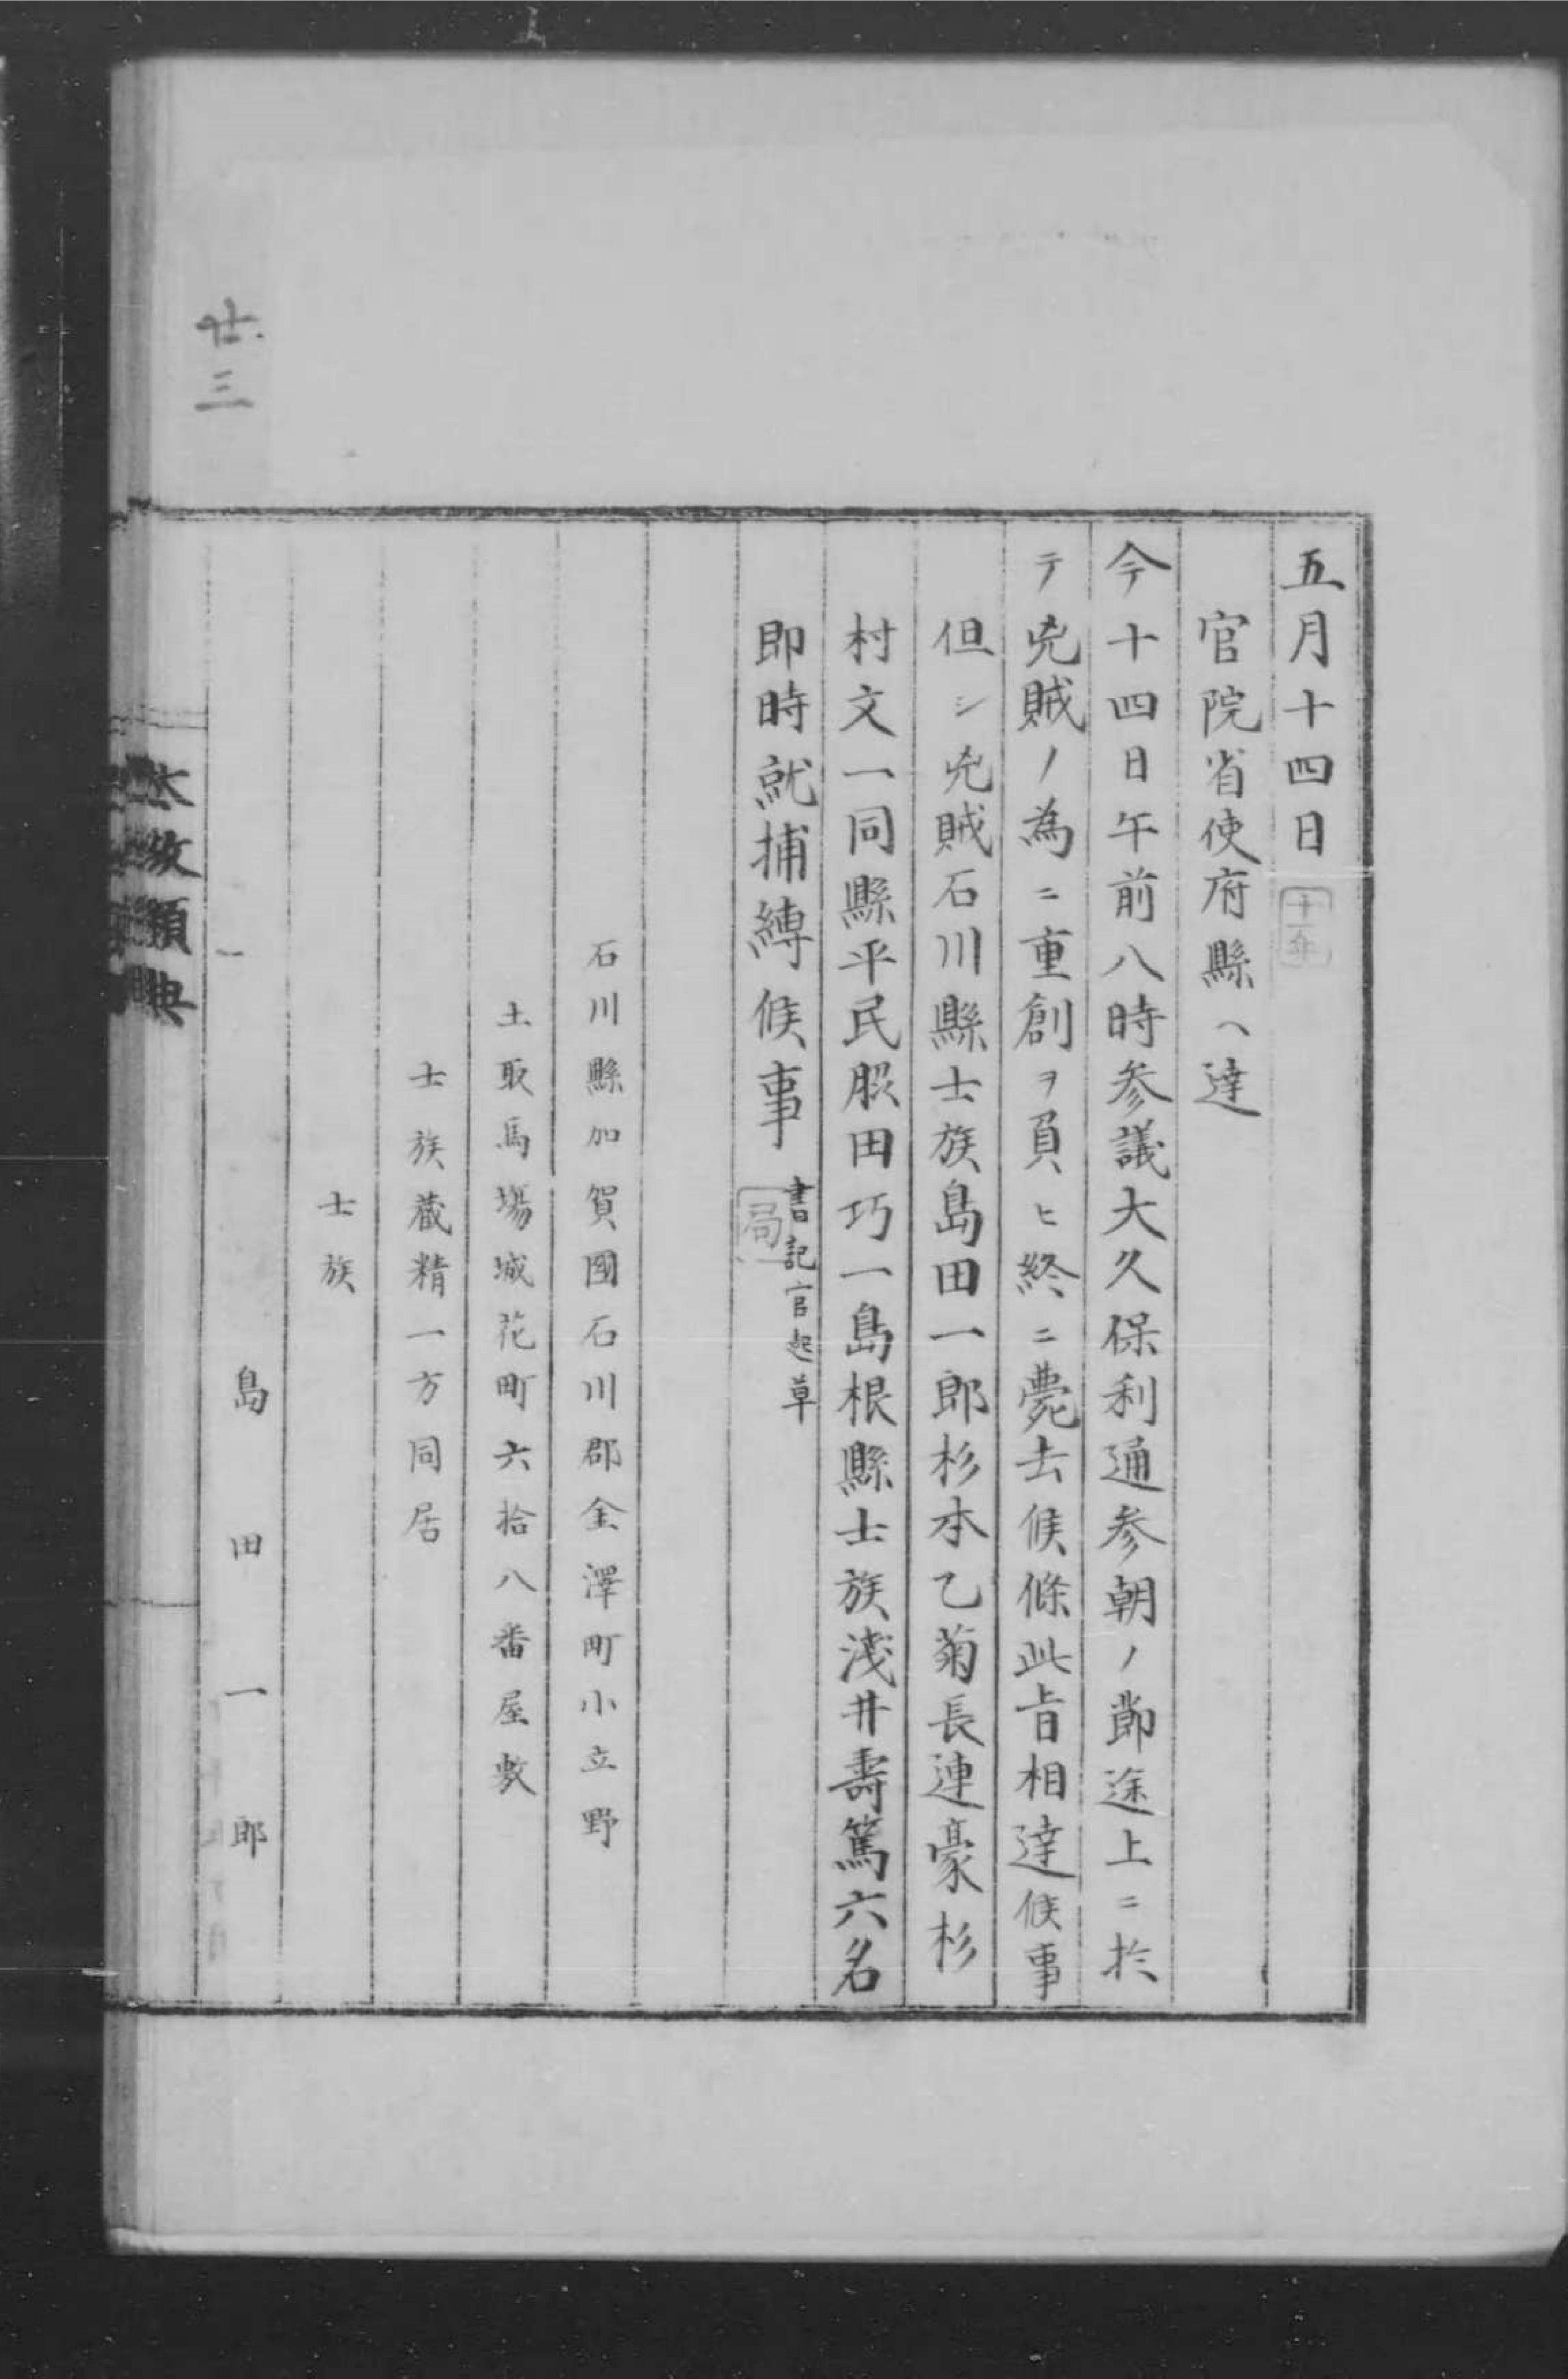 五月十四日 十一年
官院省使府縣ヘ達
今十四日午前八時参議大久保利通参朝ノ節途上ニ於
テ兇賊ノ為ニ重創ヲ負ヒ終ニ薨去候條此旨相達候事
但シ兇賊石川縣士族島田一郎杉本乙菊長連豪杉
村文一同縣平民脇田巧一島根縣士族淺井壽篤六名
即時就捕縛候事 書記官起草
局
石川縣加賀國石川郡金澤町小立野
土取馬場城花町六拾八番屋敷
士族藏精一方同居
士族
島田一郎
太政類典
廿三